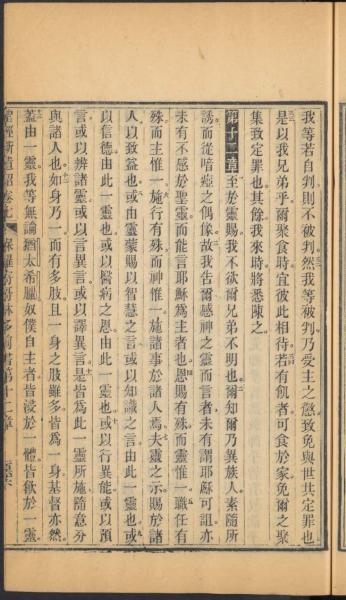 我等若自判則不被判然我等被判乃受主之懲致免與世共定罪也
是以我兄弟乎爾聚食時宜彼此相待若有飢者可食於家免爾之聚
集致定罪也其餘我來時將悉陳之
第十二章至於靈賜我不欲爾兄弟不明也爾知爾乃異族人素隨所
誘而從喑瘂之偶像故我告爾感神之靈而言者未有謂耶穌可詛亦
未有不感於聖靈而能言耶穌為主者也恩賜有殊而靈惟一職任有
殊而主惟一施行有殊而神惟一施諸事於諸人焉夫靈之示賜於諸
人以致益也或由靈蒙賜以智慧之言或以知識之言由此一靈也或
以信德由此一靈也或以醫病之恩由此一靈也或以行異能或以預
言或以辨諸靈或以言異言或以譯異言是皆為此一靈所施隨意分
與諸人也如身乃一而有多肢且一身之肢雖多皆為一身基督亦然
蓋由一靈我等無論猶太希臘奴僕自主者皆浸於一體皆飲於一靈
聖經新遺詔卷七 保羅寄哥林多前書第十二章